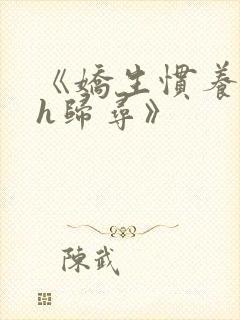 《嬌生慣養
h歸尋》
陳武